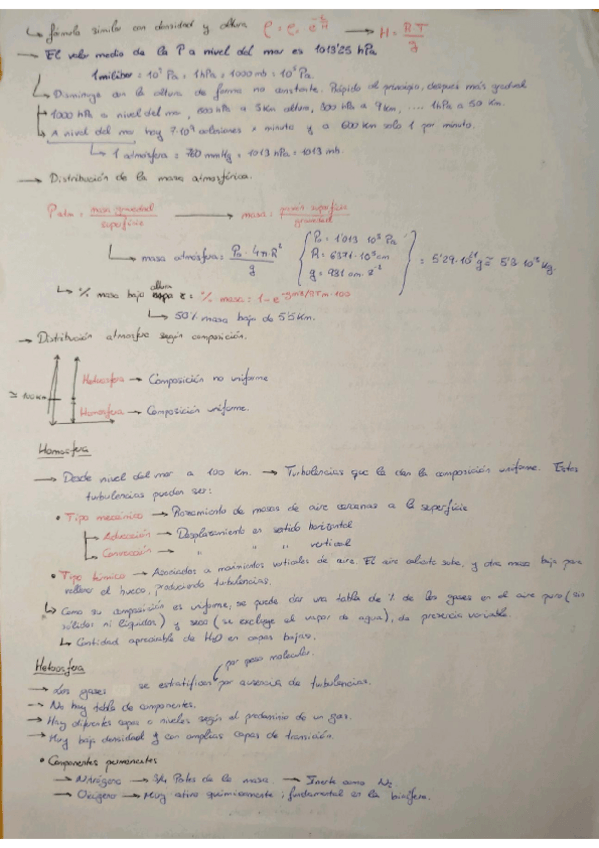 ↳ fórmula similar con densidad y altura ρ = ρ₀ e^(-z/H) → H = RT/g
→ El valor medio de la P a nivel del mar es 1013'25 hPa
1 milibar = 10² Pa = 1 hPa = 1000 mb = 10⁵ Pa.
↳ Disminuye con la altura de forma no constante. Rápido al principio, después más gradual
→ 1000 hPa a nivel del mar, 500 hPa a 5km altura, 300 hPa a 9km, .... 1hPa a 50 Km.
↳ A nivel del mar hay 7·10⁹ colisiones x minuto y a 600 Km solo 1 por minuto.
↳ 1 atmósfera = 760 mmHg = 1013 hPa = 1013 mb.
→ Distribución de la masa atmosférica.
Patm = masa gravedad / superficie → masa = presión superficie / gravedad
↳ masa atmósfera = P₀ · 4π·R² / g { P₀ = 1'013 10⁵ Pa
R = 6371·10³ cm
g = 981 cm·s⁻² } = 5'29·10²¹ g ≃ 5'3 10⁵ Kg.
↳ % masa bajo altura z = % masa = 1 - e
↳ 50% masa bajo de 5'5 Km.
→ Distribución atmosfera según composición.
Heterosfera → Composición no uniforme
≃ 100 Km
Homosfera → Composición uniforme.
Homosfera
→ Desde nivel del mar a 100 km. → Turbulencias que le dan la composición uniforme. Estas
turbulencias pueden ser:
• Tipo mecánico → Rozamiento de masas de aire cercanas a la superficie
↳ Advección → Desplazamiento en sentido horizontal
↳ Convección → " " " vertical
• Tipo térmico → Asociados a movimientos verticales de aire. El aire caliente sube, y otra masa baja para
rellenar el hueco, produciendo turbulencias.
↳ Como su composición es uniforme, se puede dar una tabla de % de los gases en el aire puro (sin
sólidos ni líquidos) y seco (se excluye el vapor de agua), de presencia variable.
↳ Cantidad apreciable de H₂O en capas bajas.
Heterosfera
por peso molecular.
→ Los gases se estratifican por ausencia de turbulencias.
→ No hay tabla de componentes.
→ Hay diferentes capas o niveles según el predominio de un gas.
→ Muy baja densidad y con amplias capas de transición.
• Componentes permanentes
→ Nitrógeno → 3/4 Partes de la masa. → Inerte como N₂.
→ Oxígeno → Muy activo químicamente; fundamental en la biosfera.